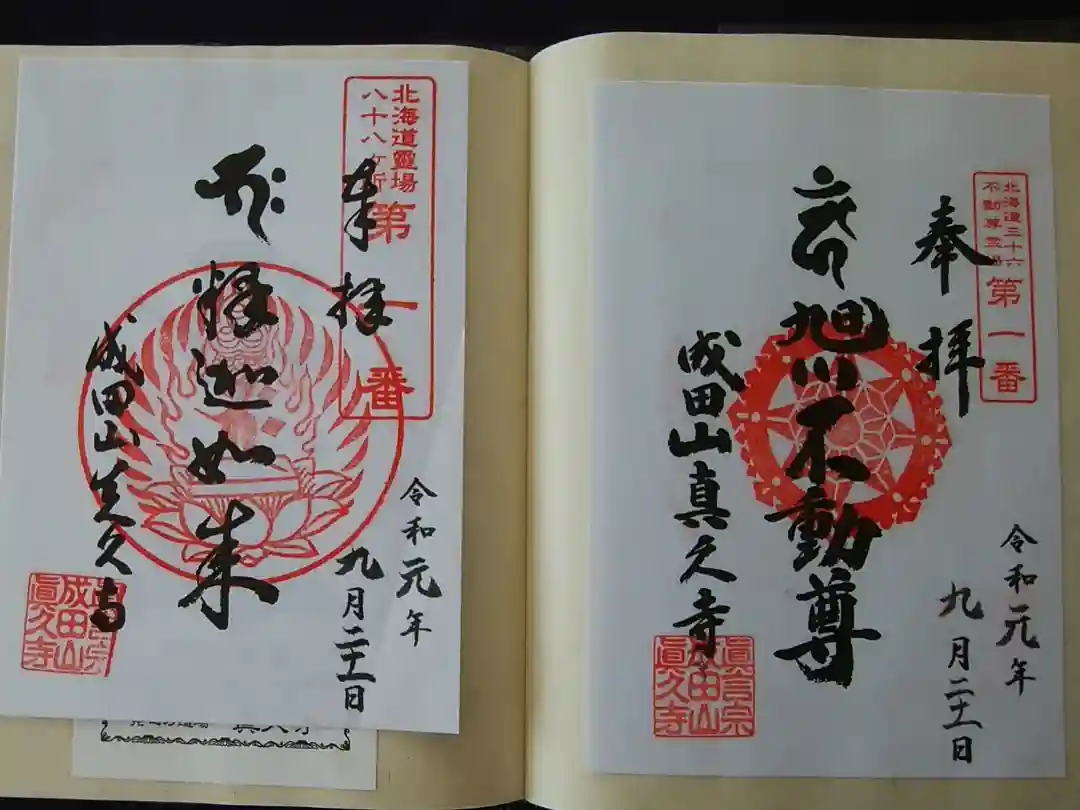 北海道靈場
八十八ヶ所
第一番
奉拝
令和元年
九月二十一日
釋迦如来
成田山真久寺
眞言宗
成田山
眞久寺
北海道三十六
不動尊霊場
第一番
奉拝
令和元年
九月二十一日
旭川不動尊
成田山真久寺
眞言宗
成田山
眞久寺